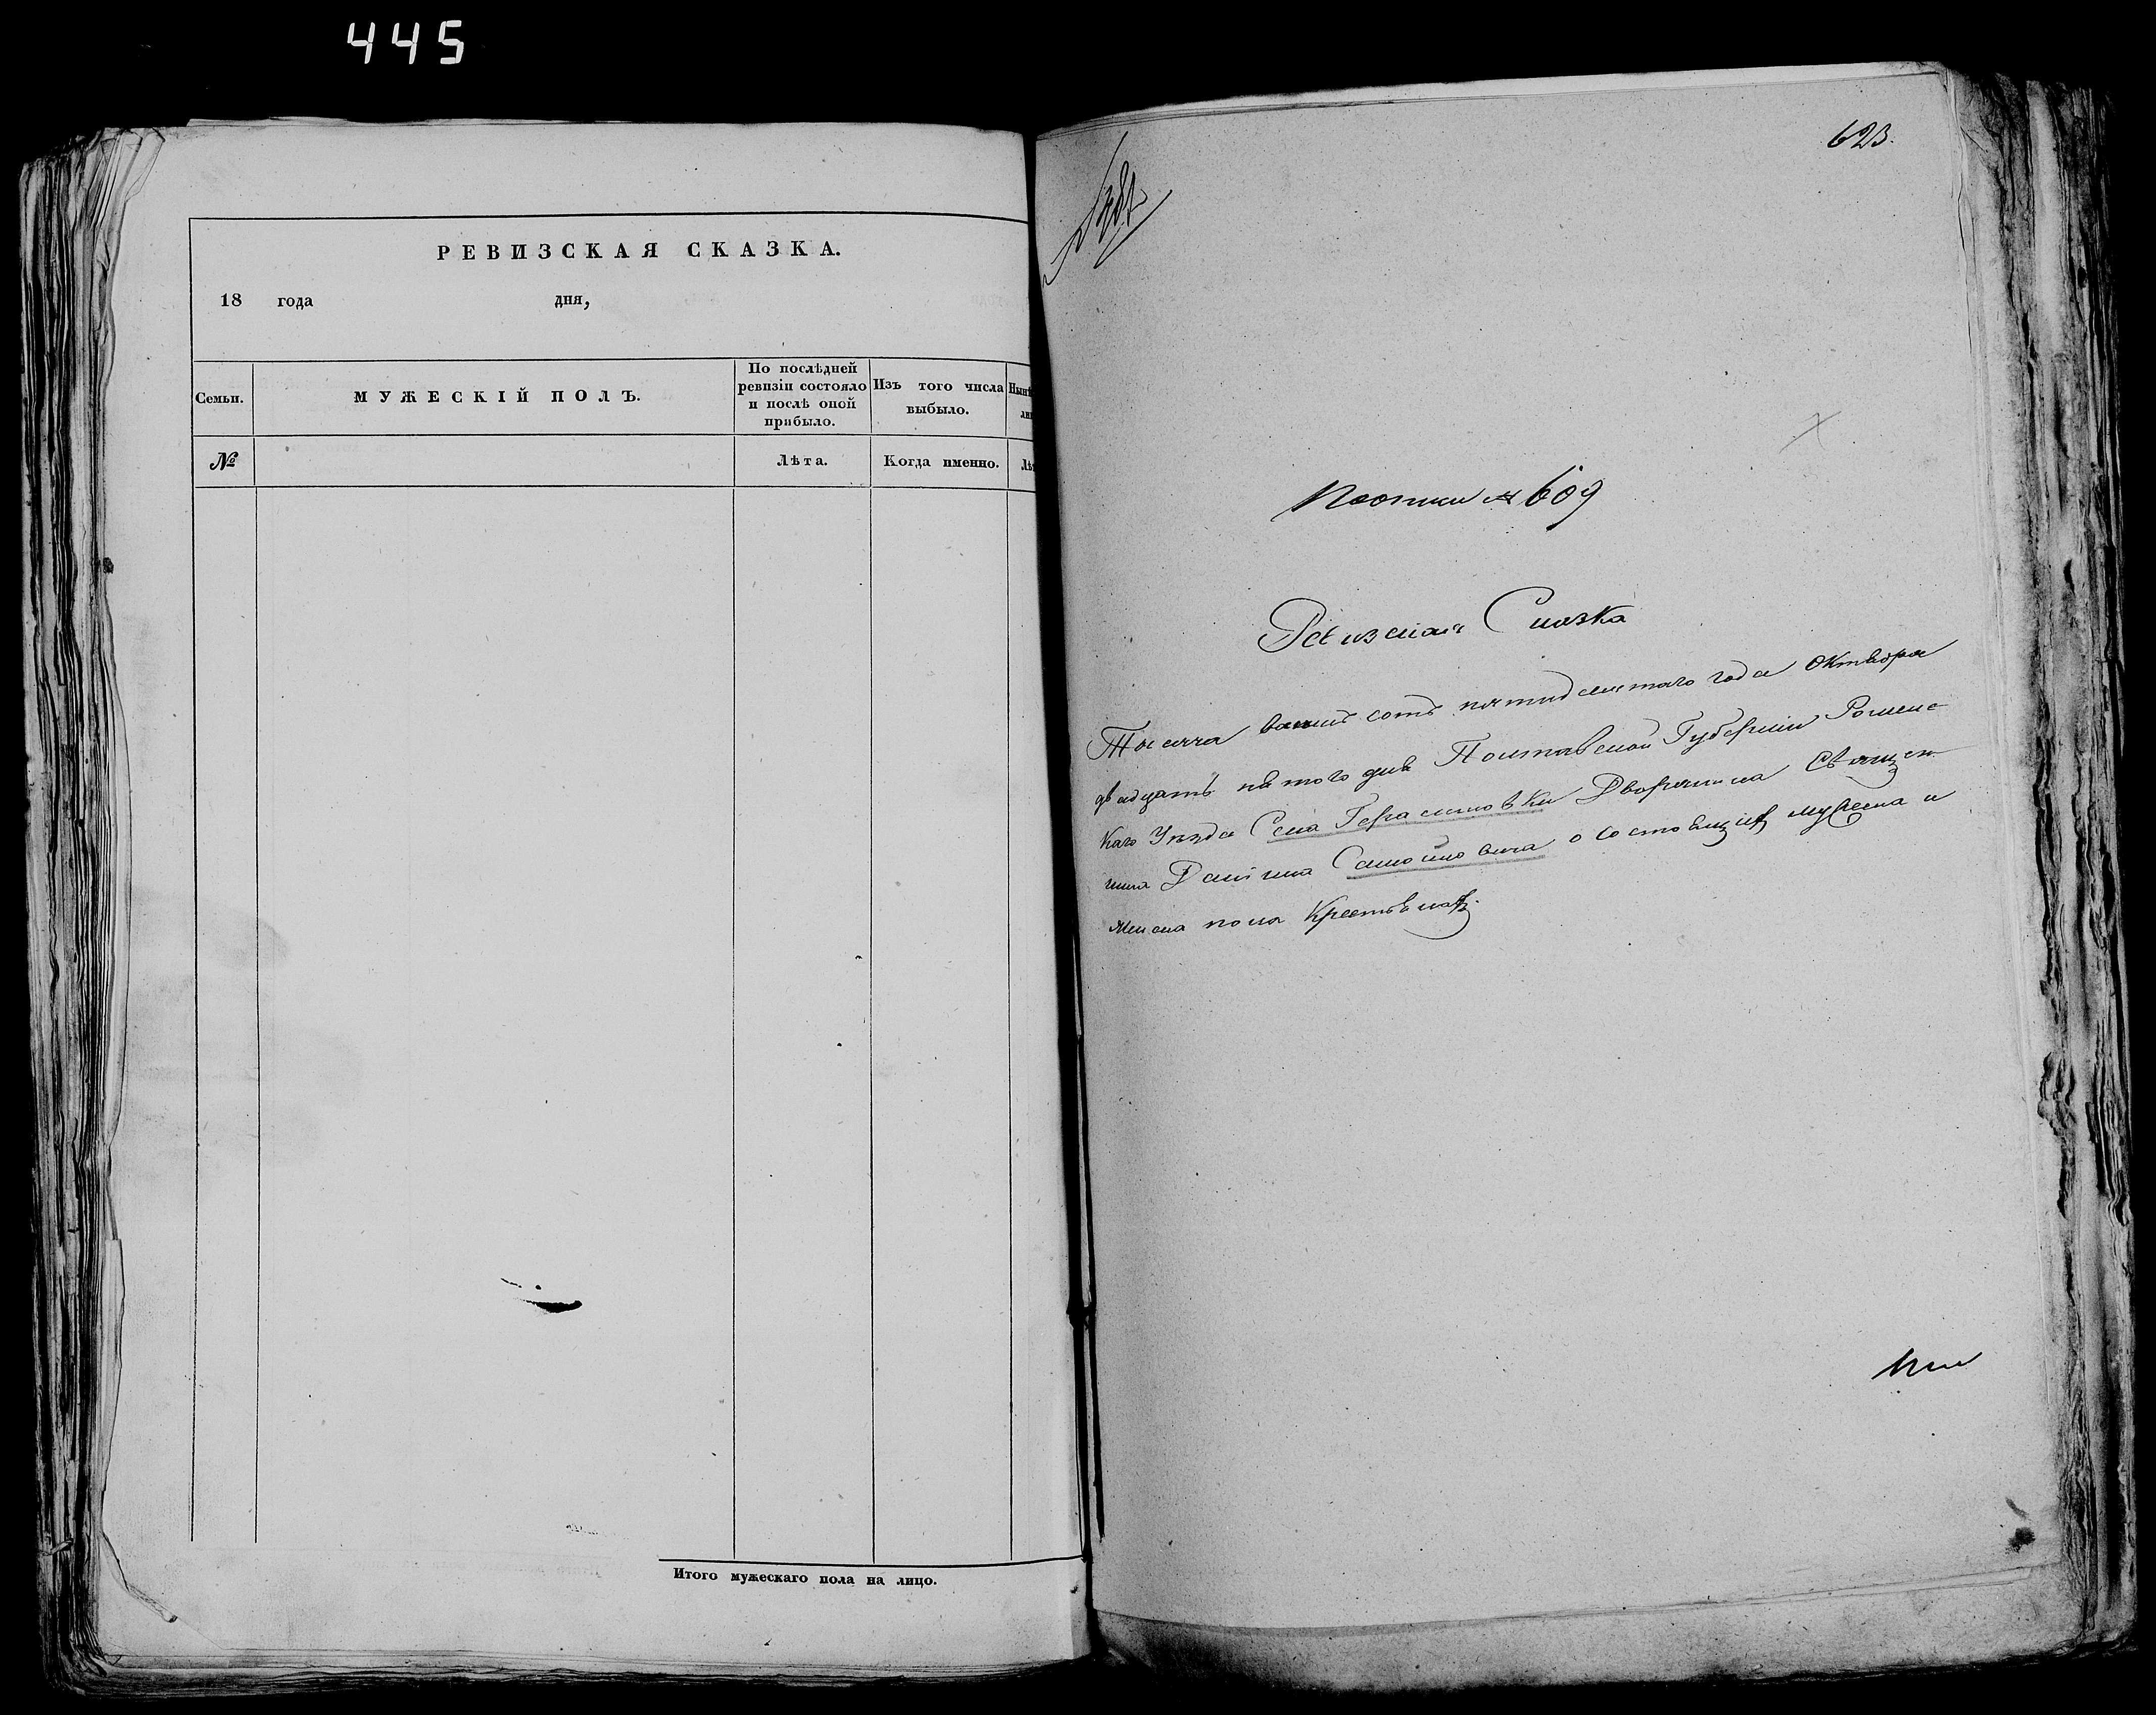 445
РЕВИЗСКАЯ СКАЗКА.
18 года дня,
Семьи.
МУЖЕСКІЙ ПОЛЪ.
По послѣдней
ревизіи состояло
и послѣ оной
прибыло.
Изъ того числа
выбыло.
№
Лѣта.
Когда именно.
Итого мужескаго пола на лицо.
623.
№ 609
Ревизская Сказка
Тысяча восемь сотъ пятидесятаго года Октября
двадцать пятого дня Полтавской Губерніи Роменс-
каго Уѣзда Села Герасимовки Дворянина Священ-
ника Самойловича о состоящихъ мужеска и
женска пола Крестьянахъ.